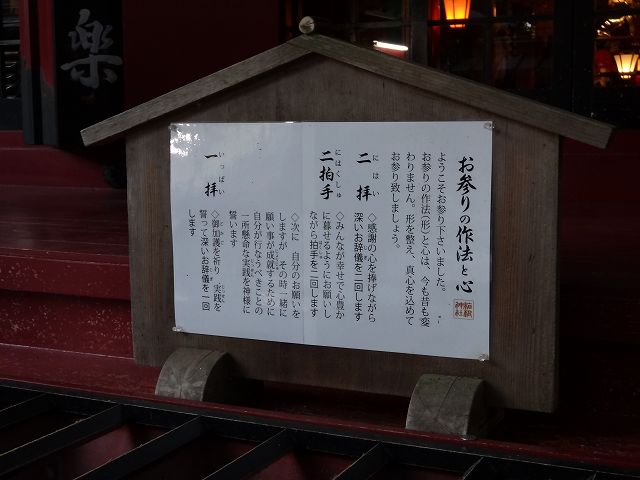 お参りの作法と心
ようこそお参り下さいました。
お参りの作法(形)と心は、今も昔も変
わりません。形を整え、真心を込めて
お参り致しましょう。
にはい
二拝
◇感謝の心を捧げながら
深いお辞儀を二回します
にはくしゅ
二拍手
◇みんなが幸せで心豊か
に暮せるようにお願いし
ながら拍手を二回します
◇次に 自分のお願いを
しますが その時一緒に
願い事が成就するために
自分が行なうべきことの
一所懸命な実践を神様に
誓います
いっぱい
一拝
◇御加護を祈り 実践を
誓って深いお辞儀を一回
します
楽